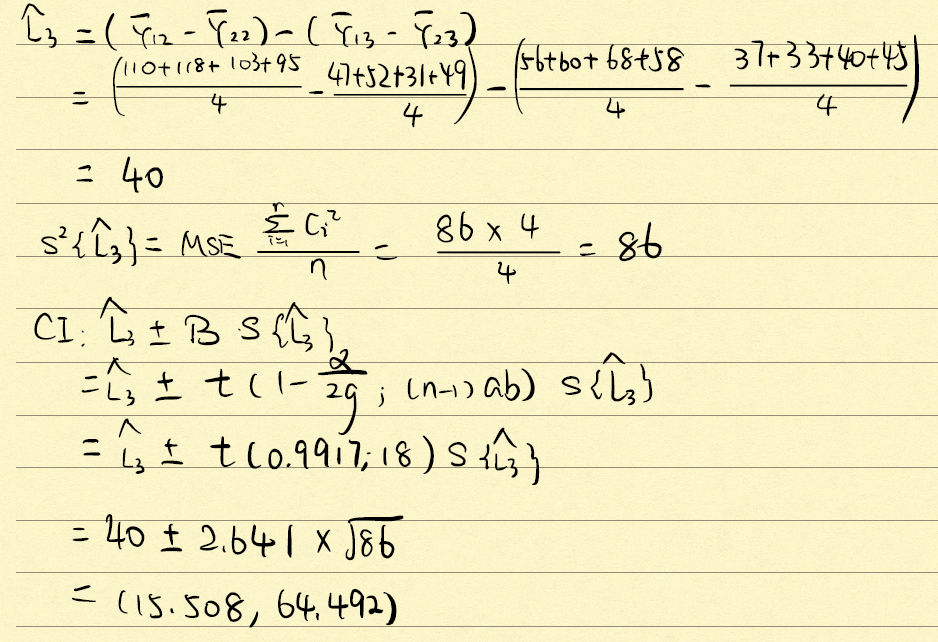 L̂₃ = (Ȳ₁₂ - Ȳ₂₂) - (Ȳ₁₃ - Ȳ₂₃)
= ((110+118+103+95)/4 - (47+52+31+49)/4) - ((56+60+68+58)/4 - (37+33+40+45)/4)
= 40
s²{L̂₃} = MSE (Σᵢ₌₁ʳ Cᵢ²)/n = (86 × 4)/4 = 86
CI: L̂₃ ± B S{L̂₃}
= L̂₃ ± t(1 - α/2g ; (n-1)ab) S{L̂₃}
= L̂₃ ± t(0.9917; 18) S{L̂₃}
= 40 ± 2.641 × √86
= (15.508, 64.492)